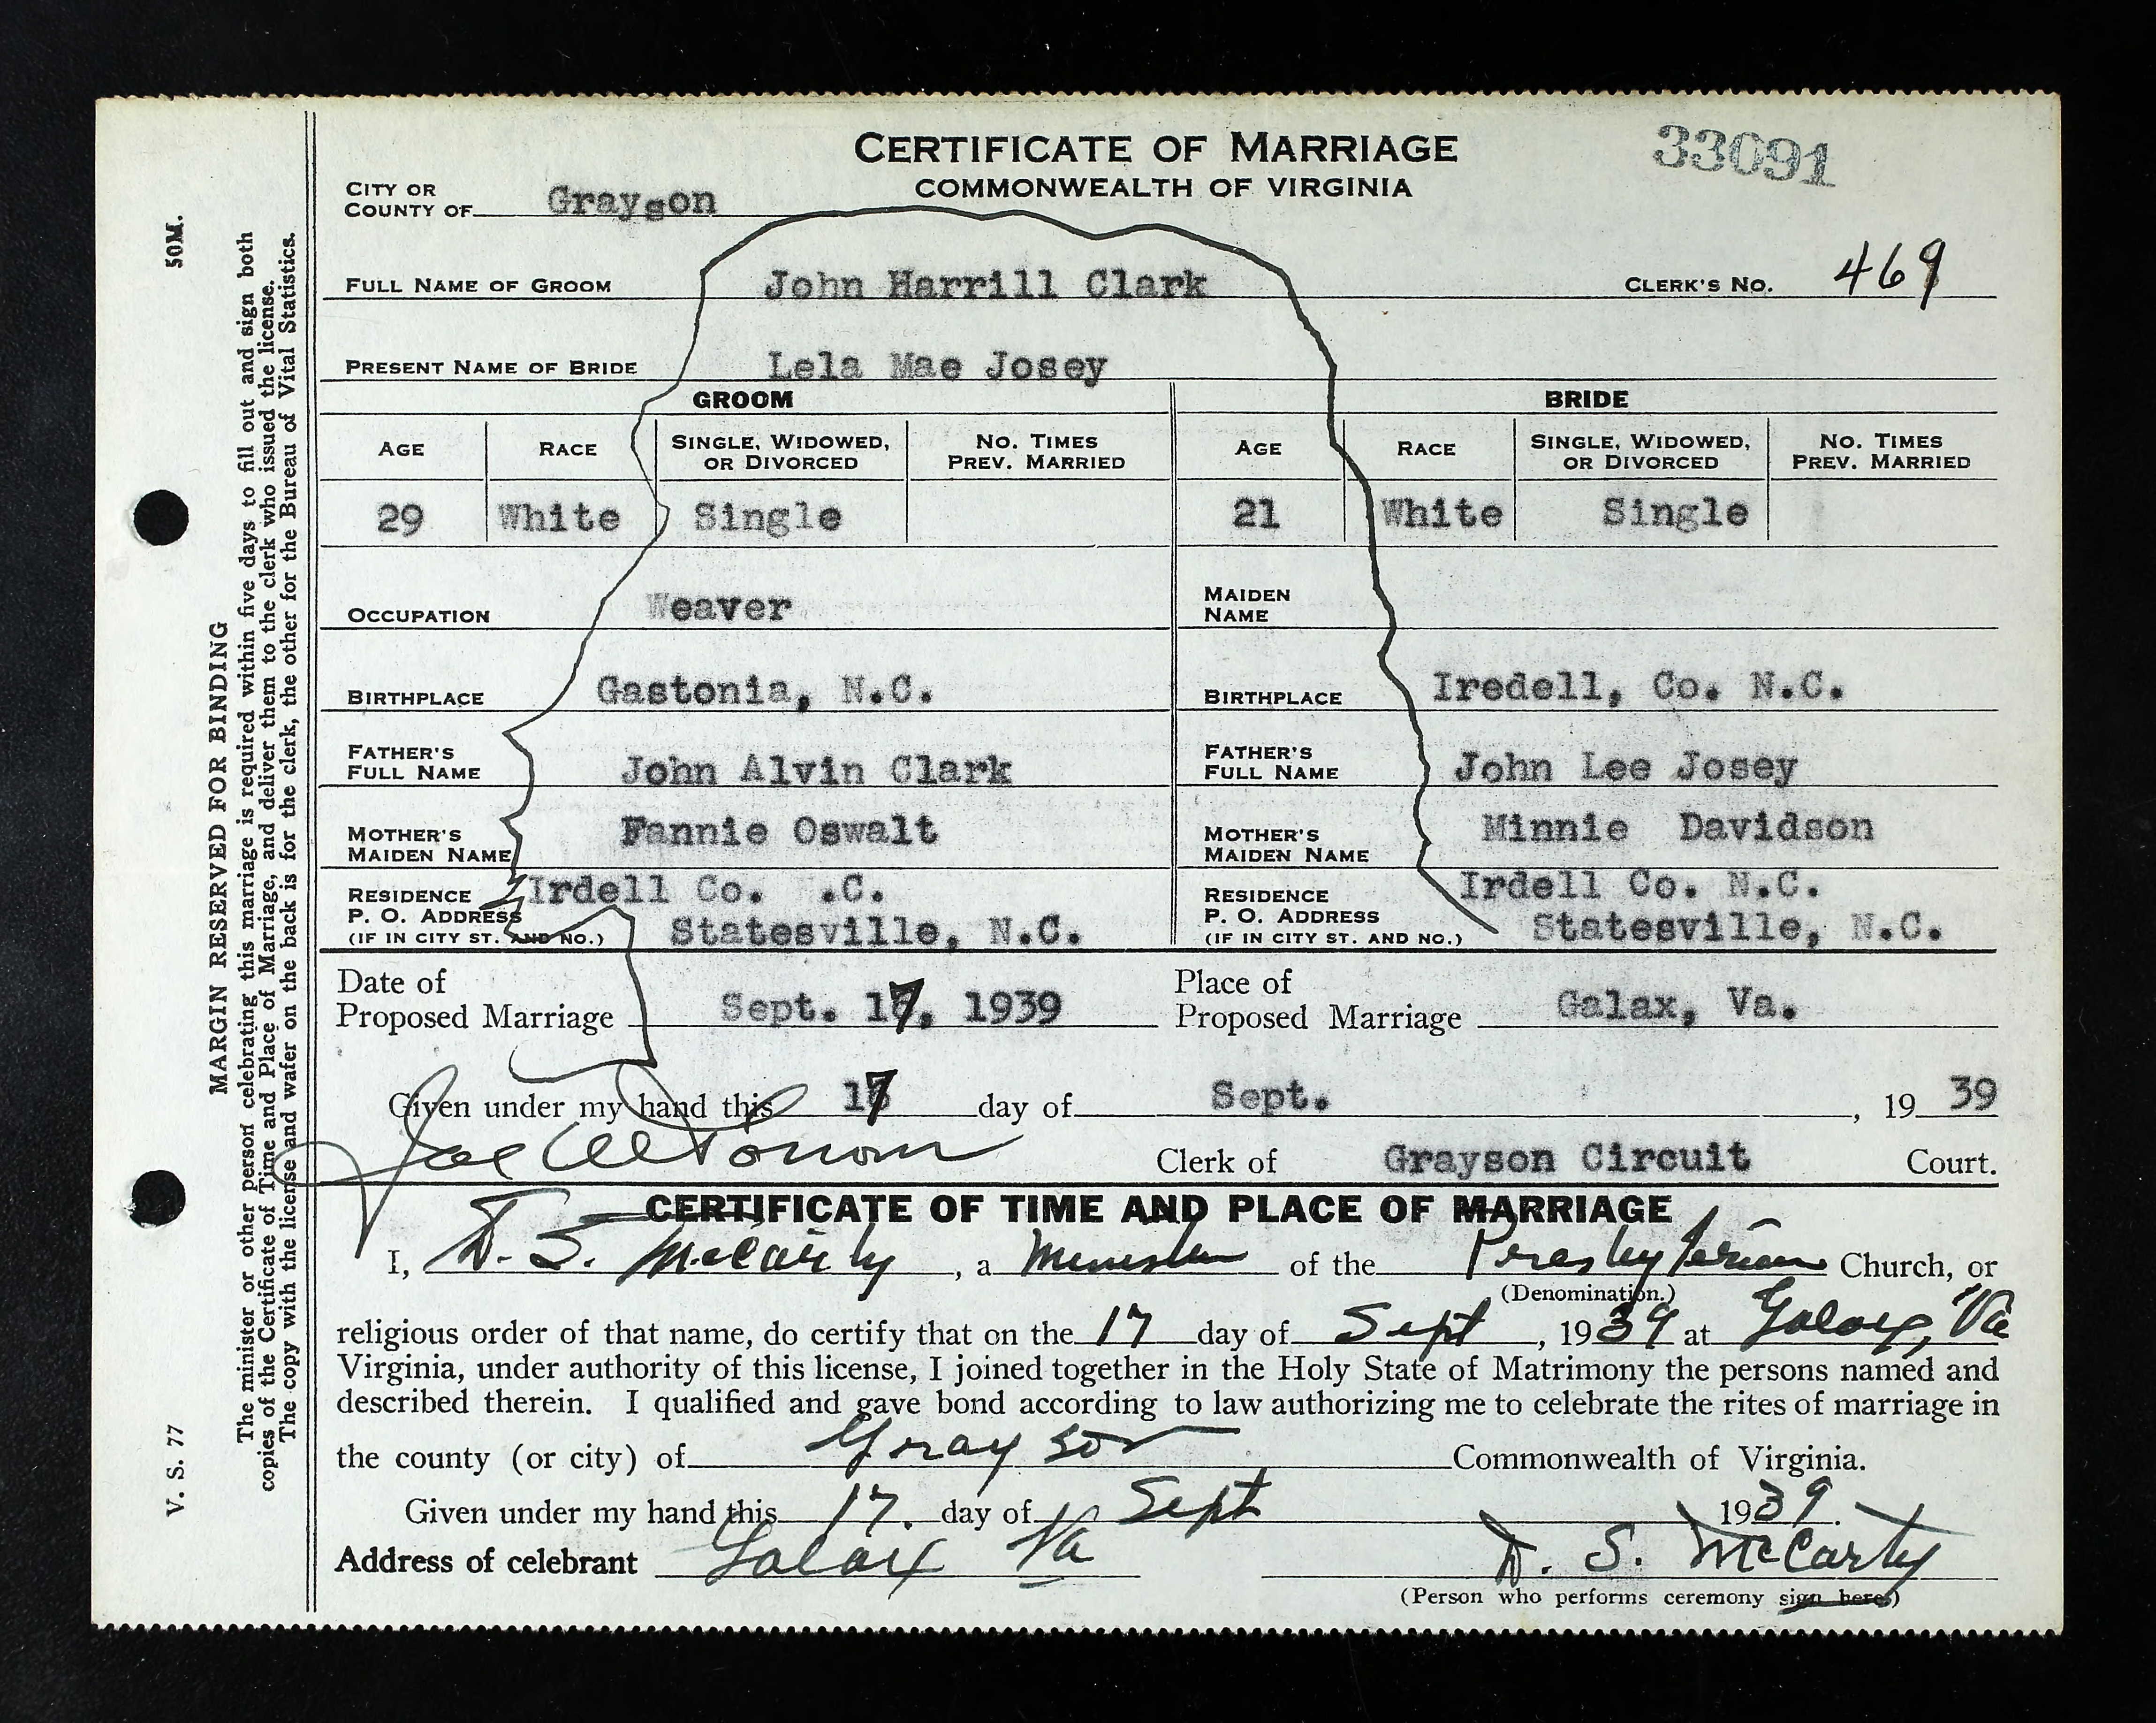 33091
CERTIFICATE OF MARRIAGE
COMMONWEALTH OF VIRGINIA
CITY OR
COUNTY OF Grayson
FULL NAME OF GROOM John Harrill Clark CLERK'S NO. 469
PRESENT NAME OF BRIDE Lela Mae Josey
GROOM BRIDE
AGE RACE SINGLE, WIDOWED, OR DIVORCED NO. TIMES PREV. MARRIED AGE RACE SINGLE, WIDOWED, OR DIVORCED NO. TIMES PREV. MARRIED
29 White Single 21 White Single
OCCUPATION Weaver MAIDEN NAME
BIRTHPLACE Gastonia, N.C. BIRTHPLACE Iredell, Co. N.C.
FATHER'S FULL NAME John Alvin Clark FATHER'S FULL NAME John Lee Josey
MOTHER'S MAIDEN NAME Fannie Oswalt MOTHER'S MAIDEN NAME Minnie Davidson
RESIDENCE Irdell Co. .C. RESIDENCE Irdell Co. N.C.
P. O. ADDRESS Statesville, N.C. P. O. ADDRESS Statesville, N.C.
(IF IN CITY ST. AND NO.) (IF IN CITY ST. AND NO.)
Date of Proposed Marriage Sept. 17, 1939 Place of Proposed Marriage Galax, Va.
Given under my hand this 17 day of Sept. , 19 39
Joe W Clerk of Grayson Circuit Court.
CERTIFICATE OF TIME AND PLACE OF MARRIAGE
I, D. S. McCarty, a Minister of the Presbyterian Church, or
(Denomination.)
religious order of that name, do certify that on the 17 day of Sept, 1939 at Galax, Va
Virginia, under authority of this license, I joined together in the Holy State of Matrimony the persons named and
described therein. I qualified and gave bond according to law authorizing me to celebrate the rites of marriage in
the county (or city) of Grayson Commonwealth of Virginia.
Given under my hand this 17. day of Sept 1939.
Address of celebrant Galax Va D. S. McCarty
(Person who performs ceremony sign here.)
50M.
MARGIN RESERVED FOR BINDING
The minister or other person celebrating this marriage is required within five days to fill out and sign both
copies of the Certificate of Time and Place of Marriage, and deliver them to the clerk who issued the license.
The copy with the license and wafer on the back is for the clerk, the other for the Bureau of Vital Statistics.
V. S. 77